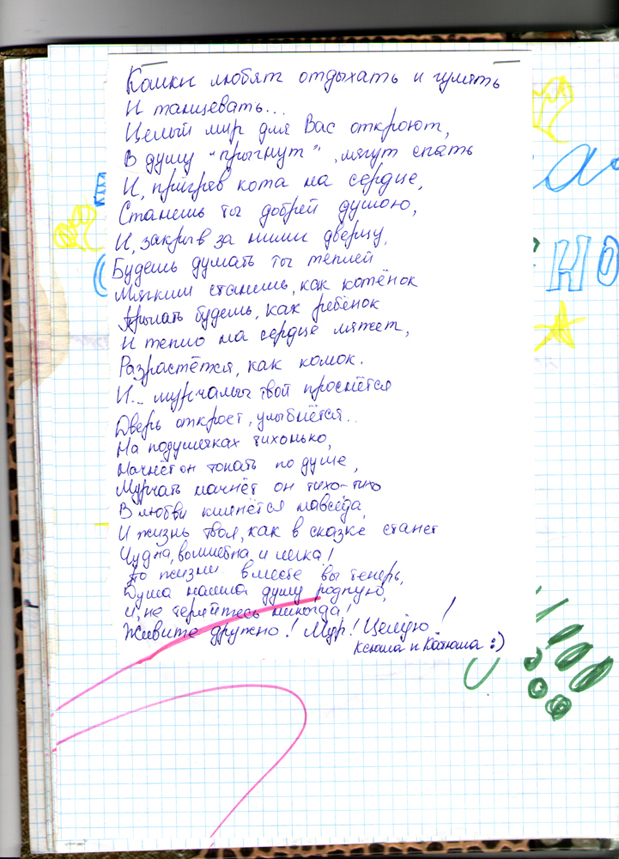 Кошки любят отдыхать и гулять
И танцевать...
Целый мир для Вас откроют,
В душу "прыгнут", лягут спать
И, пригрев кота на сердце,
Станешь ты добрей душою,
И, закрыв за ними дверцу,
Будешь думать ты теплей
Мягким станешь, как котёнок
Прыгать будешь, как ребёнок
И тепло на сердце ляжет,
Разрастётся, как комок.
И... мурчалыч твой проснётся
Дверь откроет, улыбнётся..
На подушечках тихонько,
Начнёт он топать по душе,
Мурчать начнёт он тихо-тихо
В любви клянётся навсегда,
И жизнь твоя, как в сказке станет
Чудна, волшебна, и легка!
По жизни вместе вы теперь,
Душа нашла душу родную,
И, не теряйтесь никогда!
Живите дружно! Мур! Целую!
Ксюша и Котюша :)
а
но